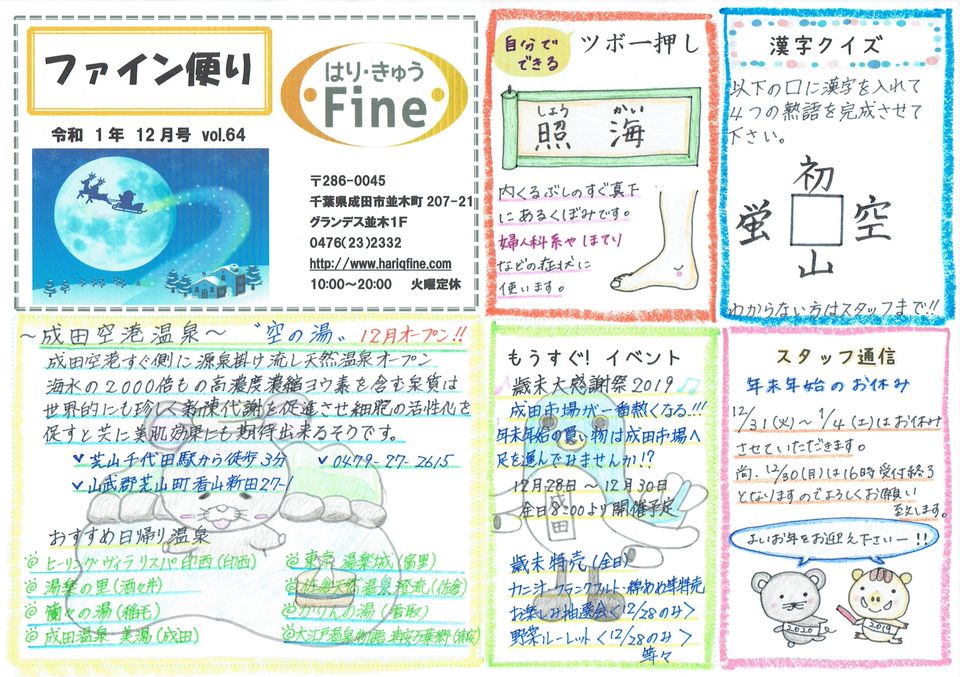 ファイン便り
はり・きゅう
Fine
令和 1年 12月号 vol.64
〒286-0045
千葉県成田市並木町 207-21
グランデス並木1F
0476(23)2332
http://www.hariqfine.com
10:00～20:00 火曜定休
自分で
できる
ツボ一押し
しょう かい
照 海
内くるぶしのすぐ真下
にあるくぼみです。
婦人科系やほてり
などの症状に
使います。
漢字クイズ
以下の口に漢字を入れて
4つの熟語を完成させて
下さい。
初
蛍 空
山
わからない方はスタッフまで!!
～成田空港温泉～ "空の湯" 12月オープン!!
成田空港すぐ側に源泉掛け流し天然温泉オープン
海水の2000倍もの高濃度濃縮ヨウ素を含む泉質は
世界的にも珍しく新陳代謝を促進させ細胞の活性化を
促すと共に美肌効果にも期待出来るそうです。
芝山千代田駅から徒歩3分 0479-27-2615
山武郡芝山町香山新田27-1
おすすめ日帰り温泉
ヒーリングヴィラリスパ印西(印西)
湯楽の里(酒々井)
(稲毛)
成田温泉 美湯(成田)
東京 温楽城(富里)
佐倉天然温泉澄流(佐倉)
かりんの湯(香取)
大江戸温泉物語
もうすぐ! イベント
歳末大感謝祭2019
成田市場が一番熱くなる!!!
年末年始の買い物は成田市場へ
足を運んでみませんか!?
12月28日～12月30日
全日8:00より開催予定
成田
歳末特売(全日)
カニ汁・フランクフルト・綿あめ等特売
お楽しみ抽選会<12/28のみ>
野菜ルーレット<12/28のみ>
等々
スタッフ通信
年末年始のお休み
12/31(火)～1/4(土)はお休み
させていただきます。
尚、12/30(月)は16時受付終了
となりますのでよろしくお願い
致します。
よいお年をお迎え下さいー!!
2020 2019